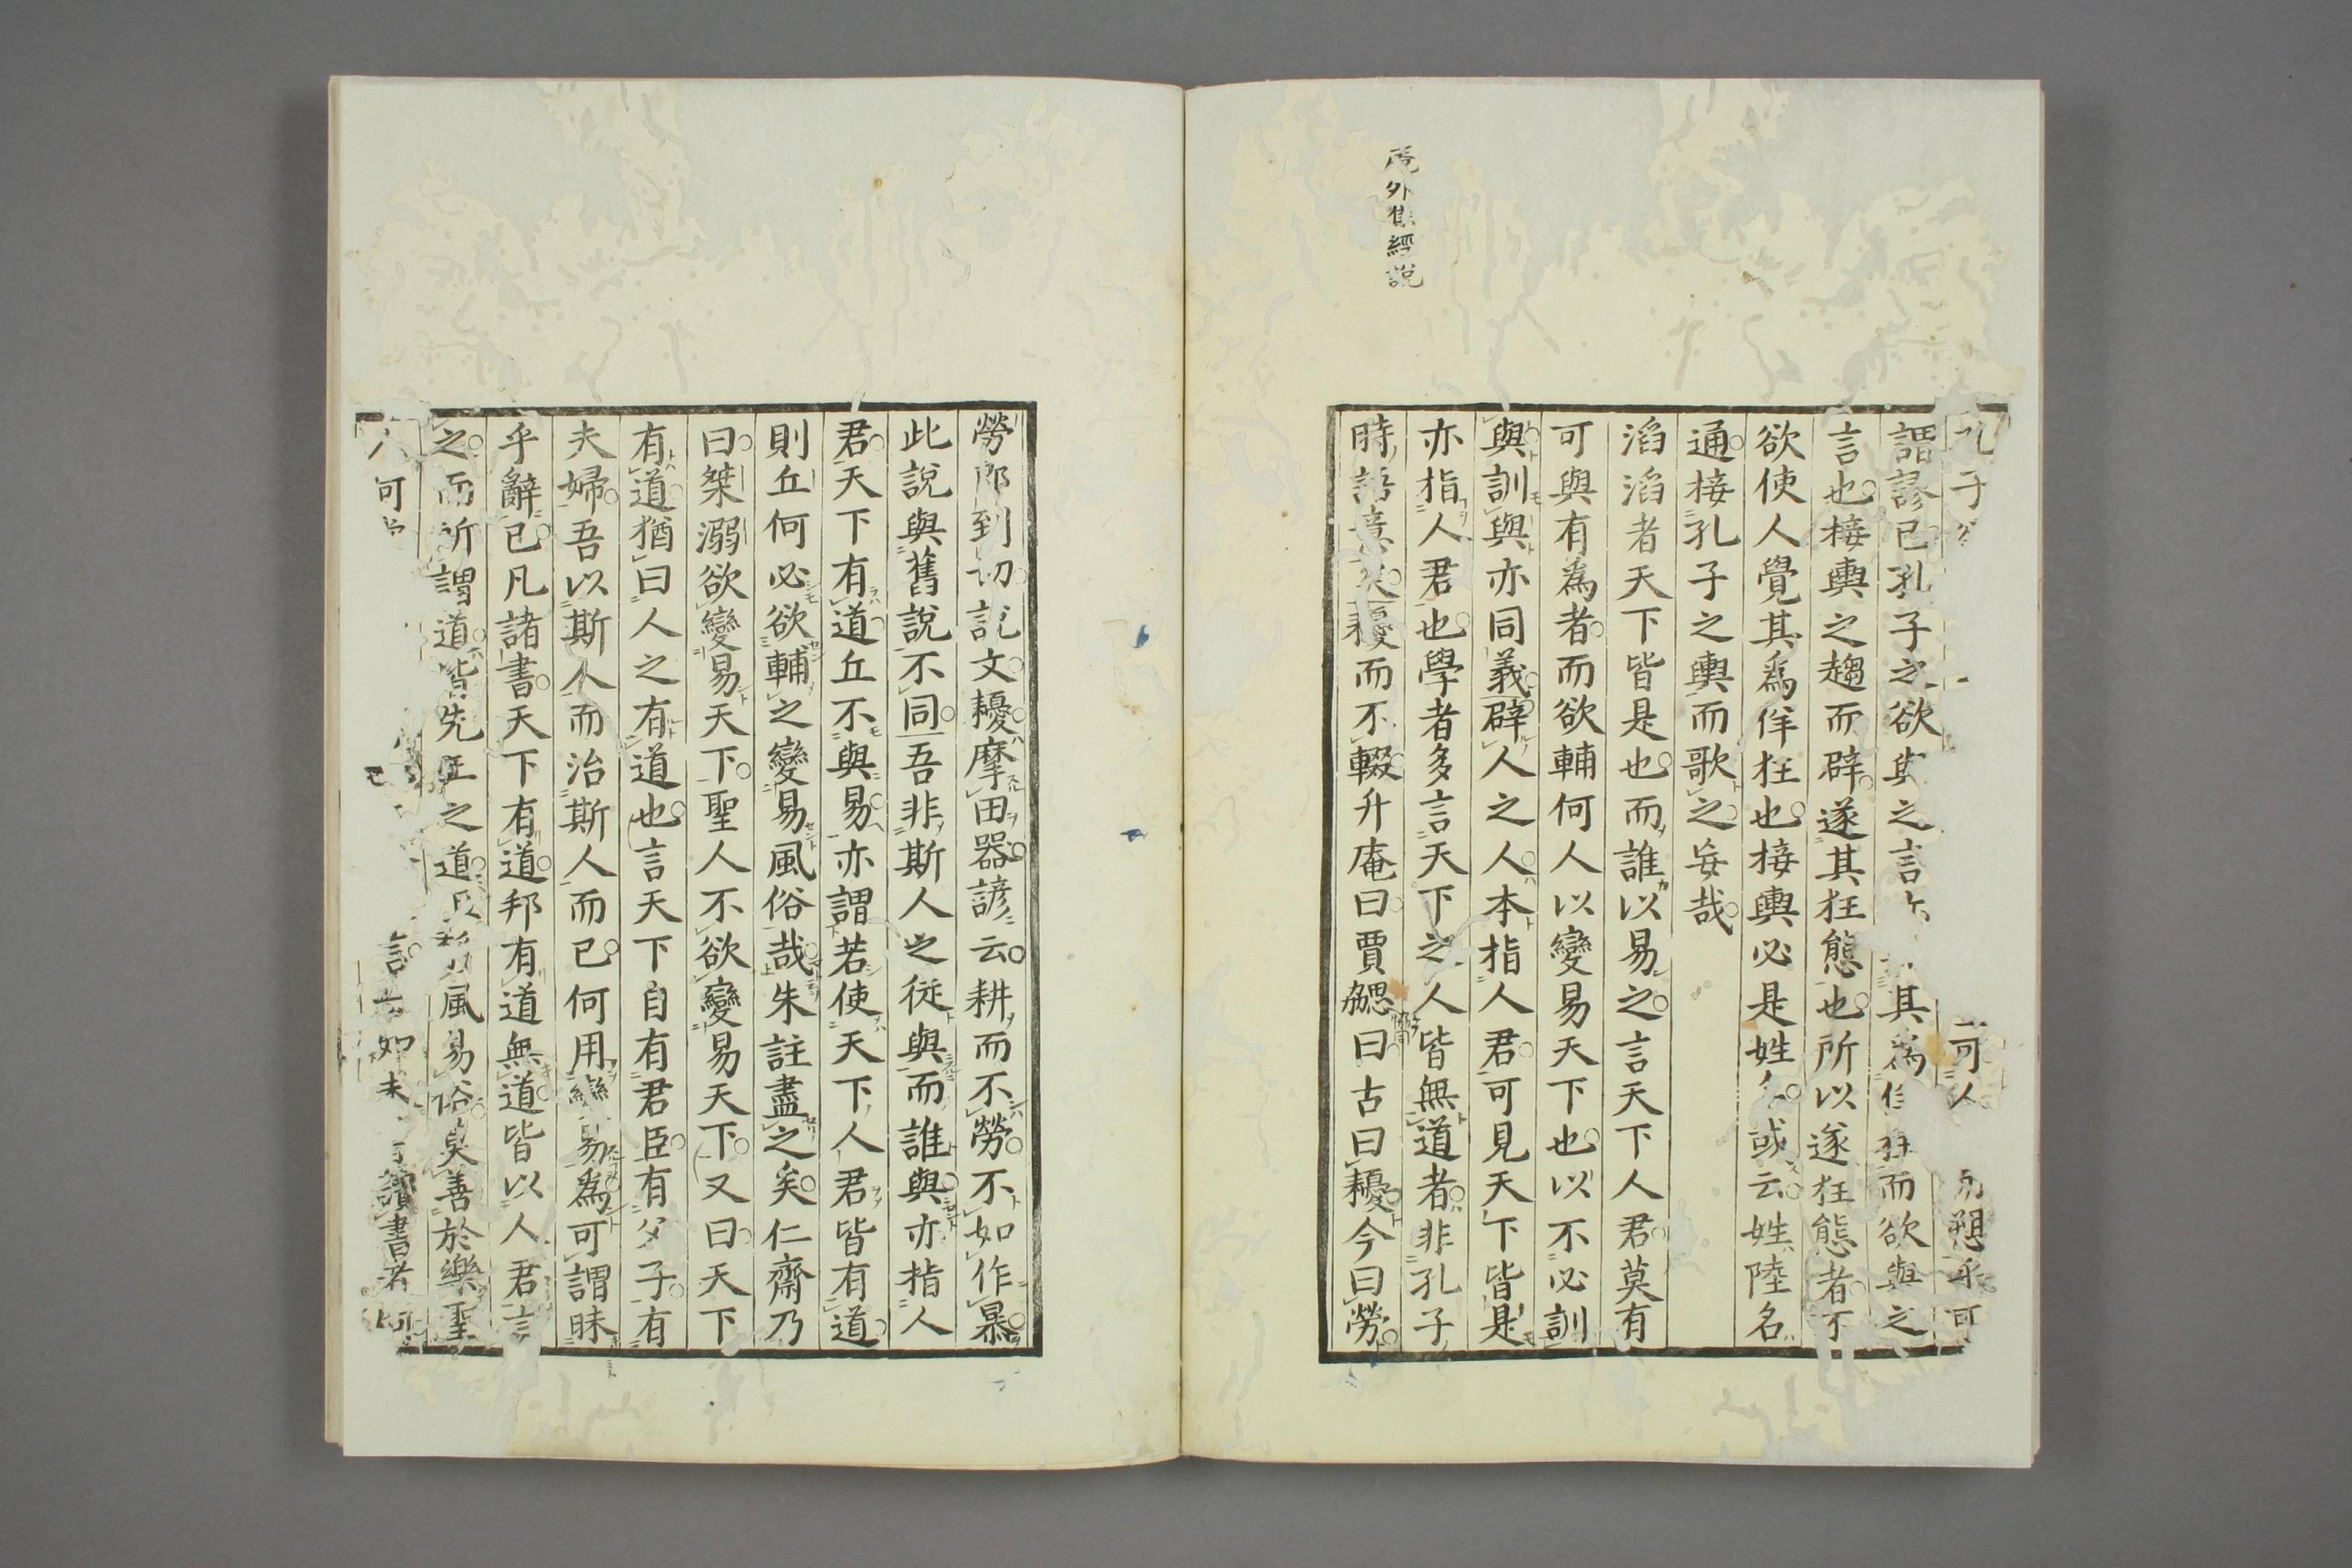 外集經說
孔子
謂諺已孔子之欲與之言 其為佯狂而欲與之
言也接輿之趨而辟遂其狂態也所以遂狂態者
欲使人覺其為佯狂也接輿必是姓名或云姓陸名
通接孔子之輿而歌之妄哉
滔滔者天下皆是也而誰以易之言天下人君莫有
可與有為者而欲輔何人以變易天下也以不必訓
與訓與亦同義辟人之人本指人君可見天下皆是
亦指人君也學者多言天下之人皆無道者非孔子
時語意矣耰而不輟升庵曰賈勰曰古曰耰今曰勞
勞郎到切說文耰摩田器諺云耕而不勞不如作暴
此說與舊說不同吾非斯人之徒與而誰與亦指人
君天下有道丘不與易亦謂若使天下人君皆有道
則丘何必欲輔之變易風俗哉朱註盡之矣仁齋乃
曰桀溺欲變易天下聖人不欲變易天下又曰天下
有道猶曰人之有道也言天下自有君臣有父子有
夫婦吾以斯人而治斯人而已何用變易為可謂昧
乎辭已凡諸書天下有道邦有道無道皆以人君言
之而所謂道皆先王之道 風易俗莫善於樂聖
人何 言 如未 讀書者